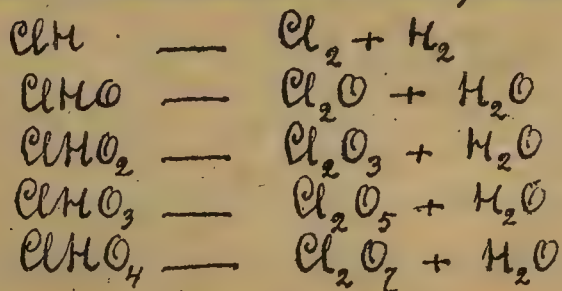 ClH — Cl₂ + H₂
ClHO — Cl₂O + H₂O
ClHO₂ — Cl₂O₃ + H₂O
ClHO₃ — Cl₂O₅ + H₂O
ClHO₄ — Cl₂O₇ + H₂O